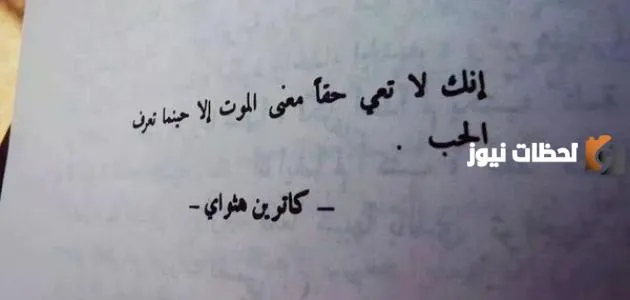 إنك لا تعي حقاً معنى الموت إلا حينما تعرف
الحب .
لحظات نيوز
– كاترين هثواي –